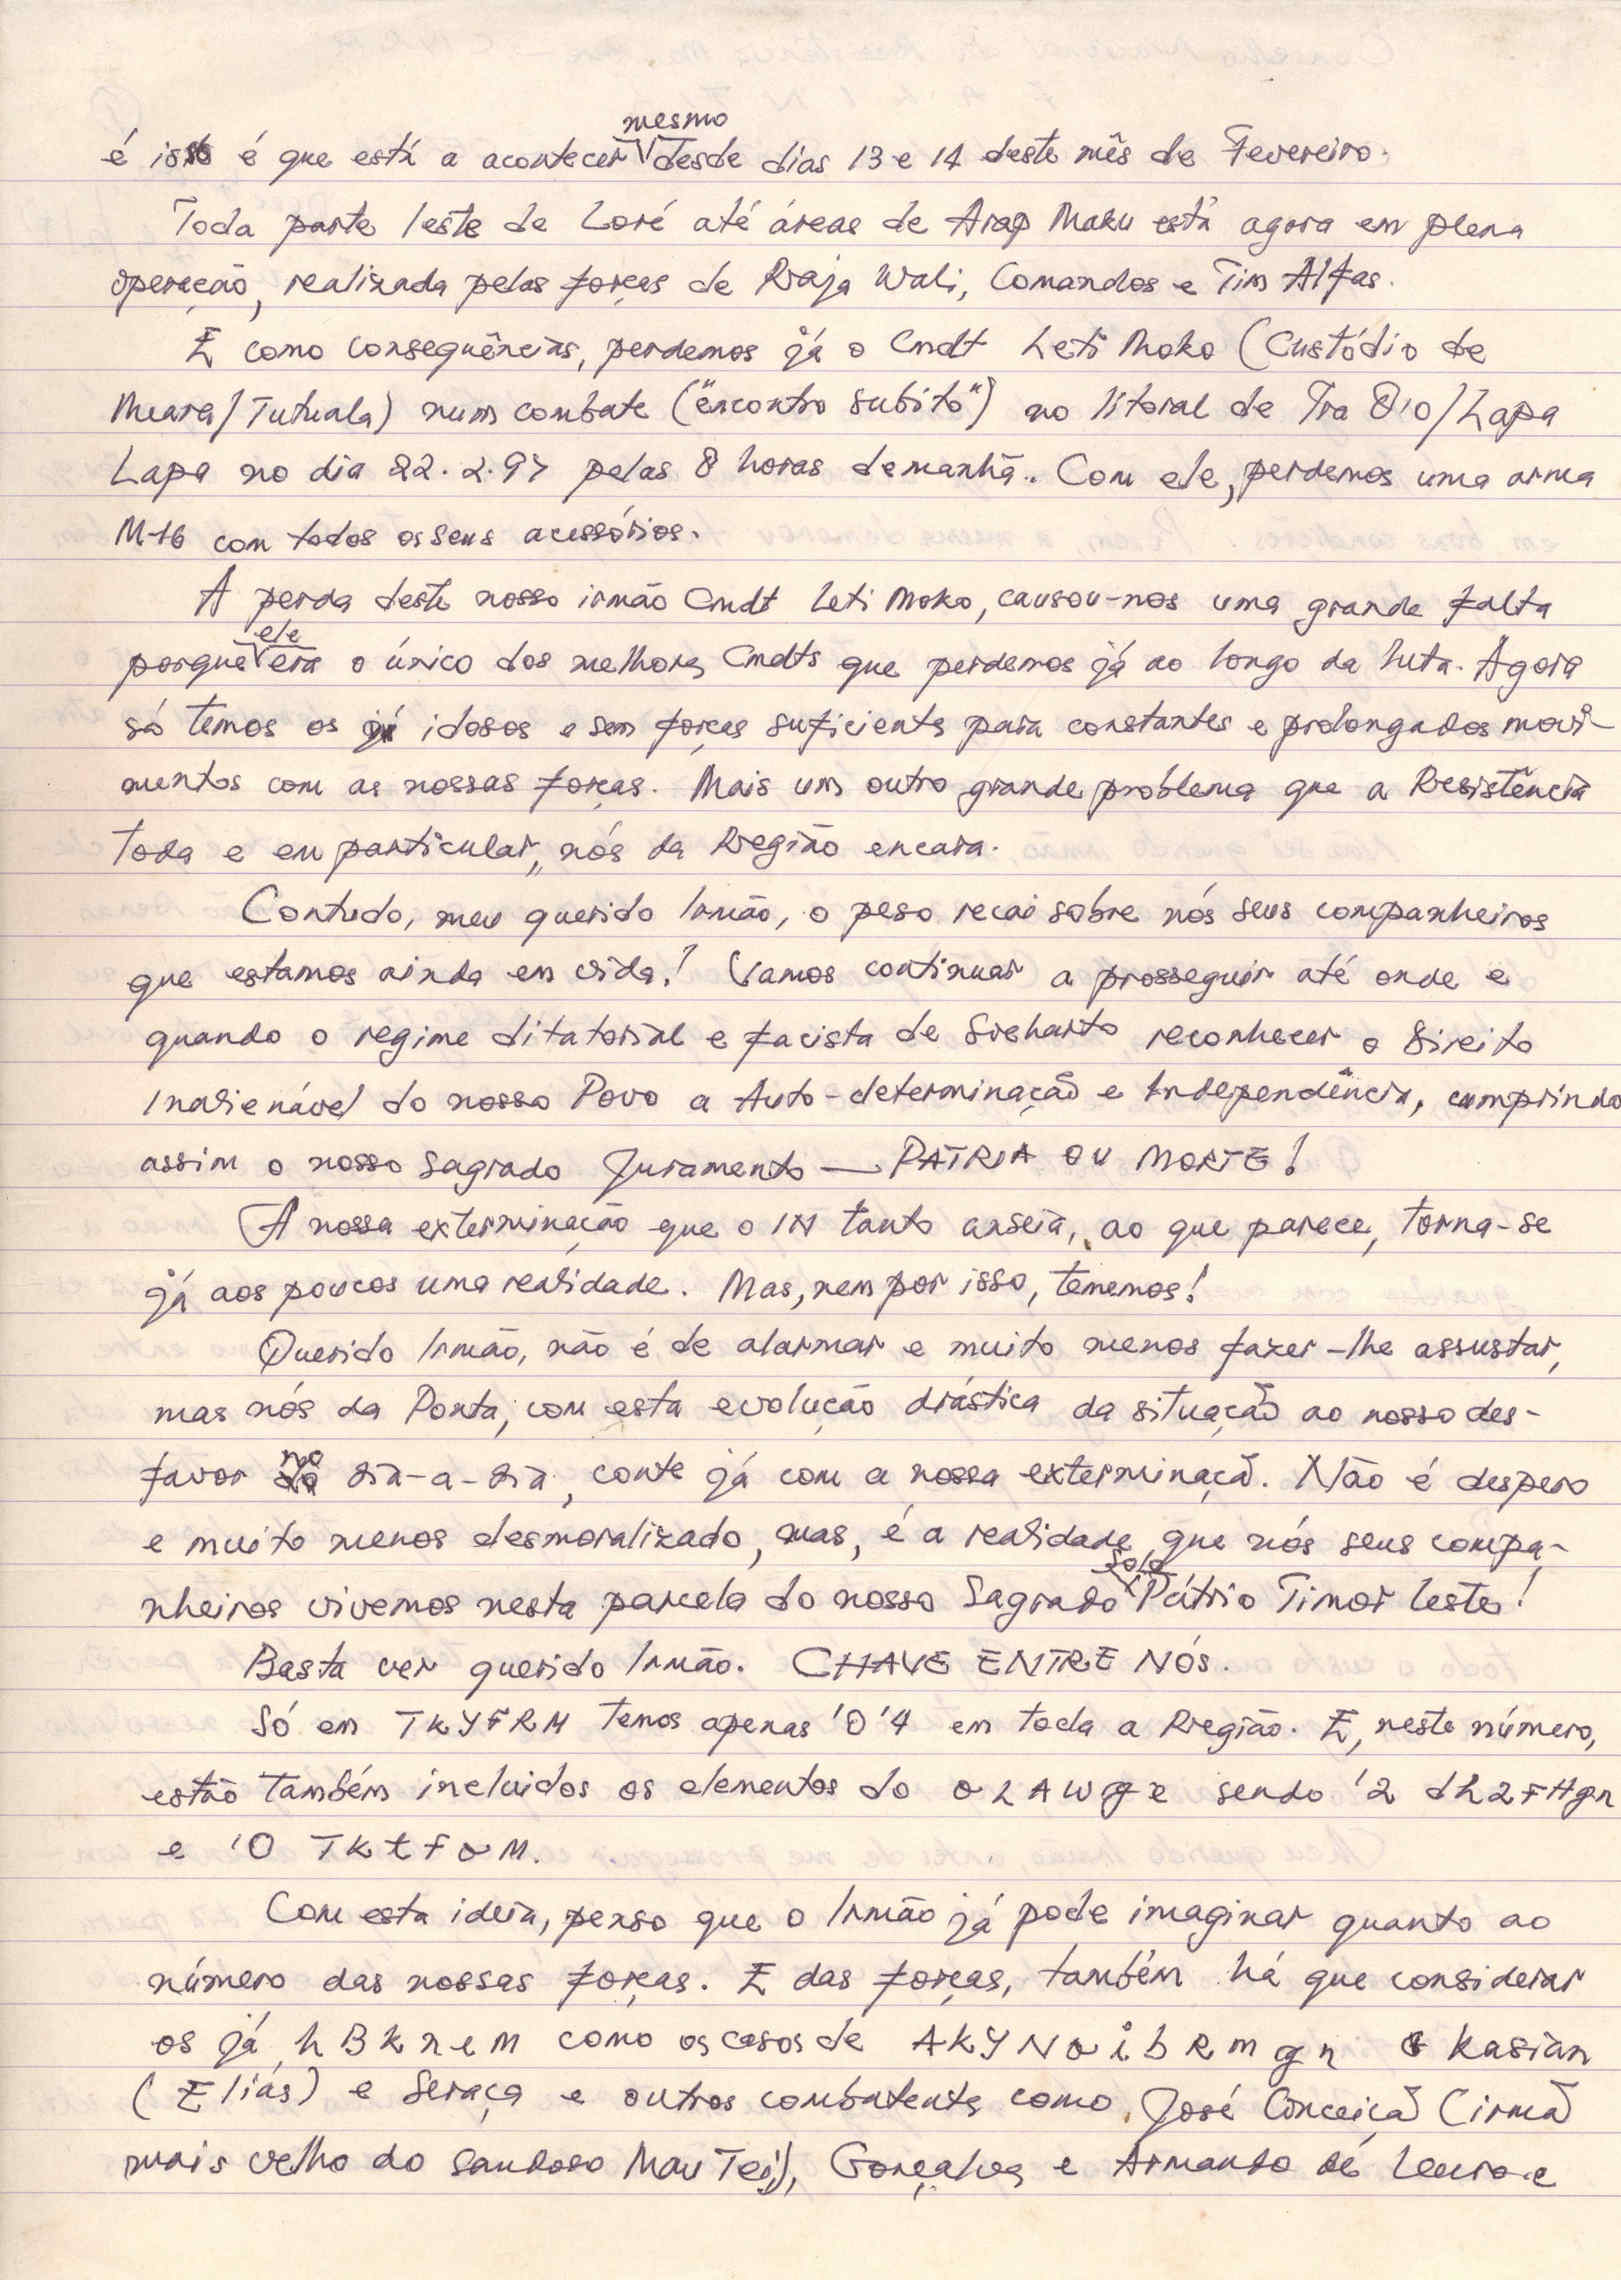 é isso é que está a acontecer mesmo desde dias 13 e 14 deste mês de Fevereiro.
Toda parte leste de Loré até áreas de Arap Maku está agora em plena
operação, realizada pelas forças de Raja Wali, Comandos e Tim Alfas.
E como consequências, perdemos já o Cmdt Leti Moko (Custódio de
Meara/Tutuala) num combate ("encontro subito") no litoral de Ira O'o/Lapa
Lapa no dia 22.2.97 pelas 8 horas demanhã. Com ele, perdemos uma arma
M-16 com todos os seus acessórios.
A perda deste nosso irmão Cmdt Leti Moko, causou-nos uma grande falta
porque ele era o único dos melhores Cmdts que perdemos já ao longo da luta. Agora
só temos os já idosos e sem forças suficients para constantes e prolongados movi-
mentos com as nossas forças. Mais um outro grande problema que a Resistência
toda e em particular, nós da Região encara.
Contudo, meu querido Irmão, o peso recai sobre nós seus companheiros
que estamos ainda em vida! Vamos continuar a prosseguir até onde e
quando o regime ditatorial e facista de Suharto reconhecer o Direito
Inalienável do nosso Povo a Auto-determinação e Independência, cumprindo
assim o nosso Sagrado Juramento — PATRIA OU MORTE!
A nossa exterminação que o IN tanto anseia, ao que parece, torna-se
já aos poucos uma realidade. Mas, nem por isso, tememos!
Querido Irmão, não é de alarmar e muito menos fazer-lhe assustar,
mas nós da Ponta, com esta evolução drástica da situação ao nosso des-
favor no dia-a-dia, conte já com a nossa exterminaçã. Não é despero
e muito menos desmoralizado, mas, é a realidade que nós seus compa-
nheiros vivemos nesta parcela do nosso Sagrado Solo Pátrio Timor Leste!
Basta ver querido Irmão. CHAVE ENTRE NÓS.
Só em TKYFRM temos apenas 'O'4 em toda a Região. E, neste número,
estão também incluidos os elementos do sendo '2
e 'O
Com esta ideia, penso que o Irmão já pode imaginar quanto ao
número das nossas forças. E das forças, também há que considerar
os já hBKnem como os casos de Kasian
(Eliás) e Seraça e outros combatents como José Conceiçã (irmã
mais velho do saudoso Mau Tei), Gonçalves e Armando de